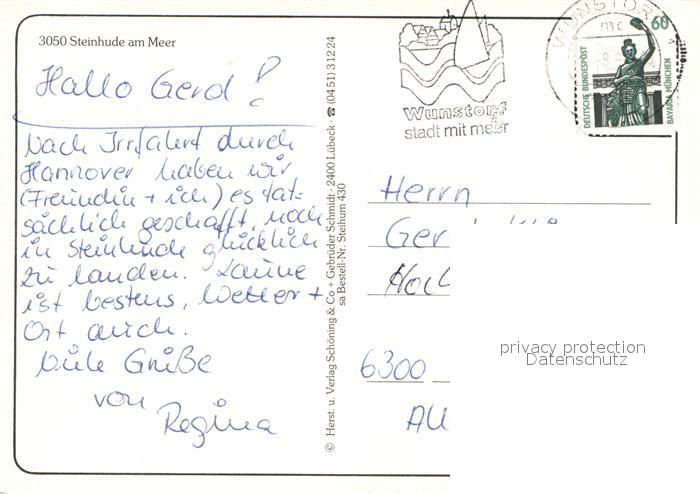 3050 Steinhude am Meer
Hallo Gerd!
Nach Irrfahrt durch
Hannover haben wir
(Freundin + ich) es tat-
sächlich geschafft, noch
in Steinhude glücklich
zu landen. Laune
ist bestens, Wetter +
Ort auch.
Viele Grüße
von
Regina
© Herst. u. Verlag Schöning & Co + Gebrüder Schmidt · 2400 Lübeck ☎ (0451) 31224
sa Bestell-Nr. Steihum 430
Wunstorf
stadt mit meer
WUNSTORF
60
DEUTSCHE BUNDESPOST
BAVARIA MÜNCHEN
Herrn
Ger
6300
privacy protection
Datenschutz